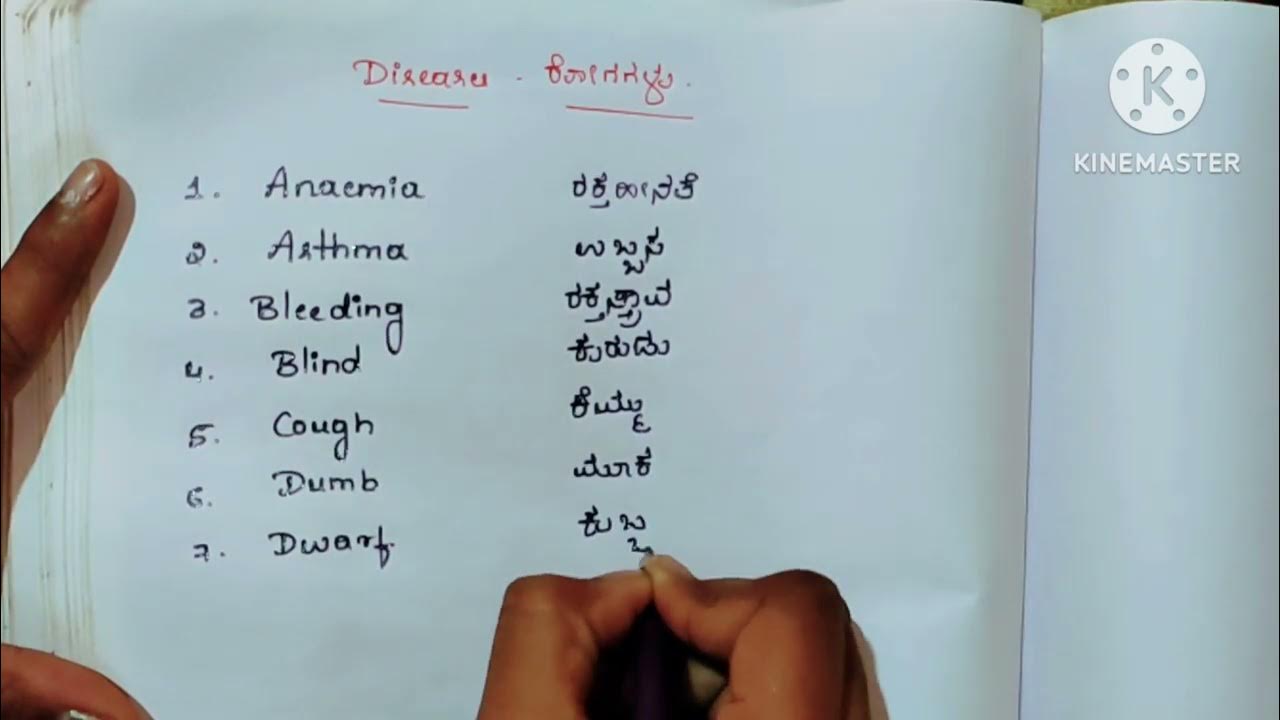 Diseases - ರೋಗಗಳು.
1. Anaemia ರಕ್ತಹೀನತೆ
2. Asthma ಉಬ್ಬಸ
3. Bleeding ರಕ್ತಸ್ತ್ರಾವ
4. Blind ಕುರುಡು
5. Cough ಕೆಮ್ಮು
6. Dumb ಮೂಕ
7. Dwarf. ಕುಬ್ಜ
KINEMASTER